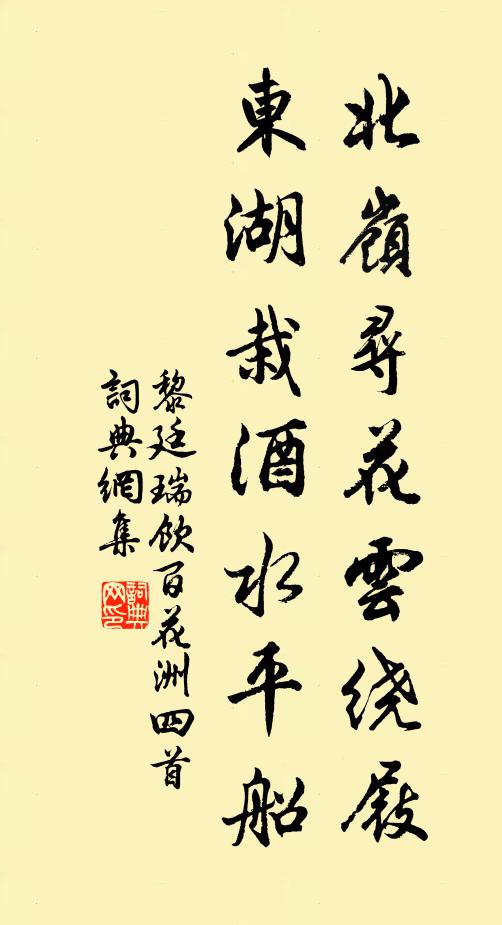 北嶺尋花雲繞屐
東湖栽酒水平船
黎廷瑞飲百花洲四首
詞典網集
詞典网印